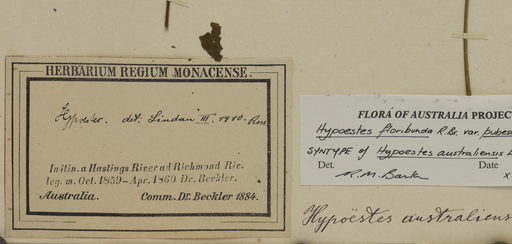 HERBARIUM REGIUM MONACENSE.
Hypoestes. det. Lindau III. 1910.
In itin. a Hastings River ad Richmond Riv.
leg. m. Oct. 1859-Apr. 1860 Dr. Beckler.
Australia. Comm. Dr. Beckler 1884.
FLORA OF AUSTRALIA PROJEC
Hypoestes floribunda R.Br. var. pubes
SYNTYPE of Hypoestes australiensis
Det. Date
R.M. Barker
Hypoëstes australiens